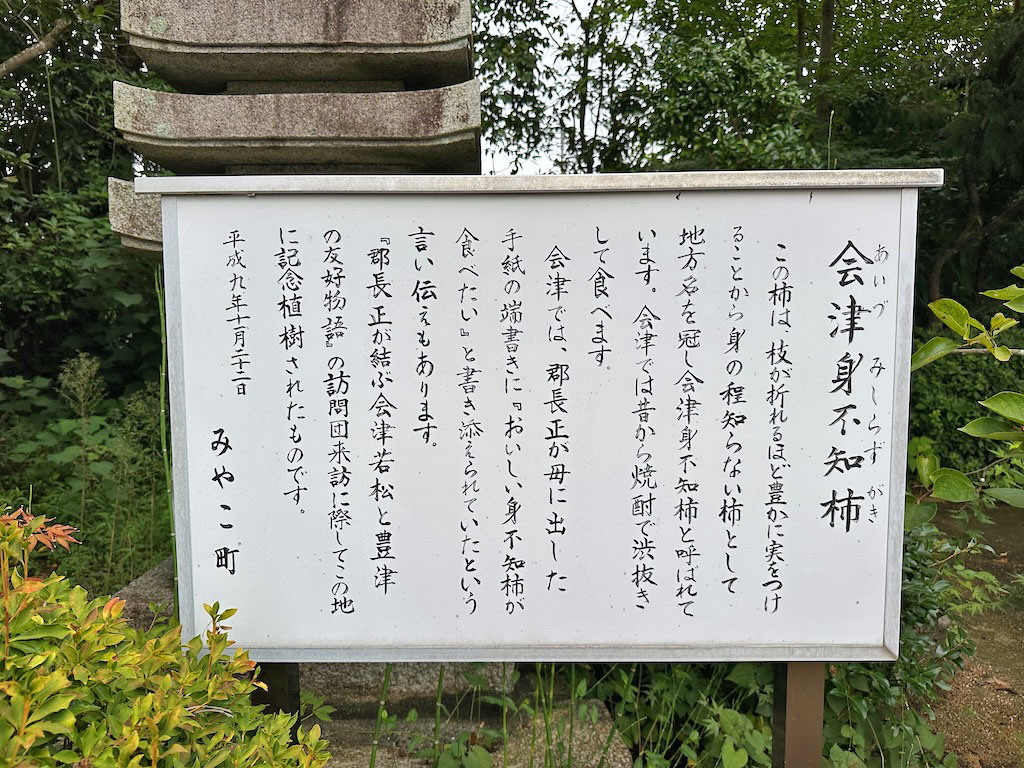 会津身不知柿
あいづ みしらず がき
この柿は、枝が折れるほど豊かに実をつけ
ることから身の程知らない柿として
地方名を冠し会津身不知柿と呼ばれて
います。会津では昔から焼酎で渋抜き
して食べます。
会津では、郡長正が母に出した
手紙の端書きに『おいしい身不知柿が
食べたい』と書き添えられていたという
言い伝えもあります。
『郡長正が結ぶ会津若松と豊津
の友好物語』の訪問団来訪に際してこの地
に記念植樹されたものです。
平成九年十月二十二日
みやこ町